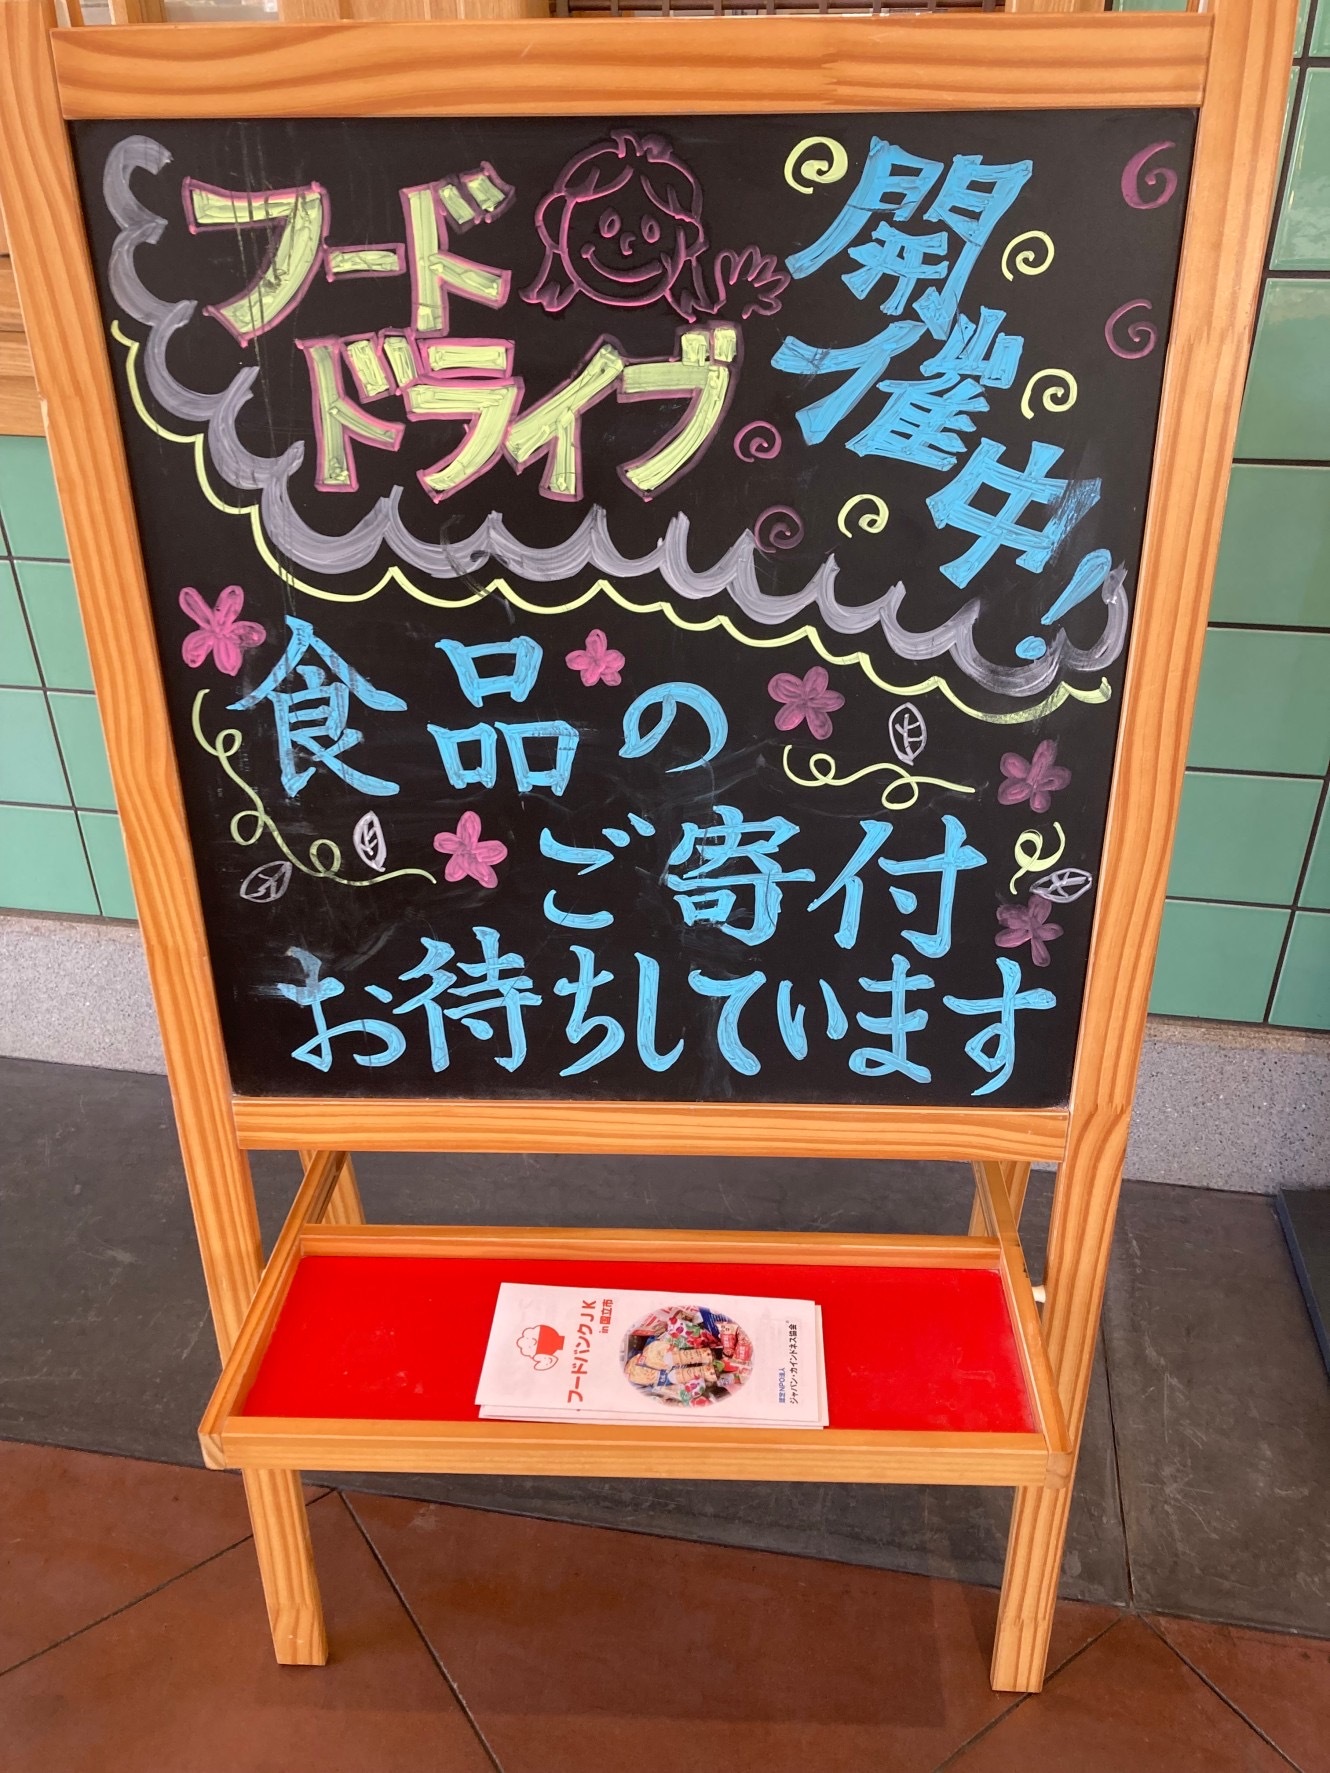 フード
ドライブ
開催中!
食品の
ご寄付
お待ちしています
フードバンクJK
in国立市
認定NPO法人
ジャパン・カインドネス協会